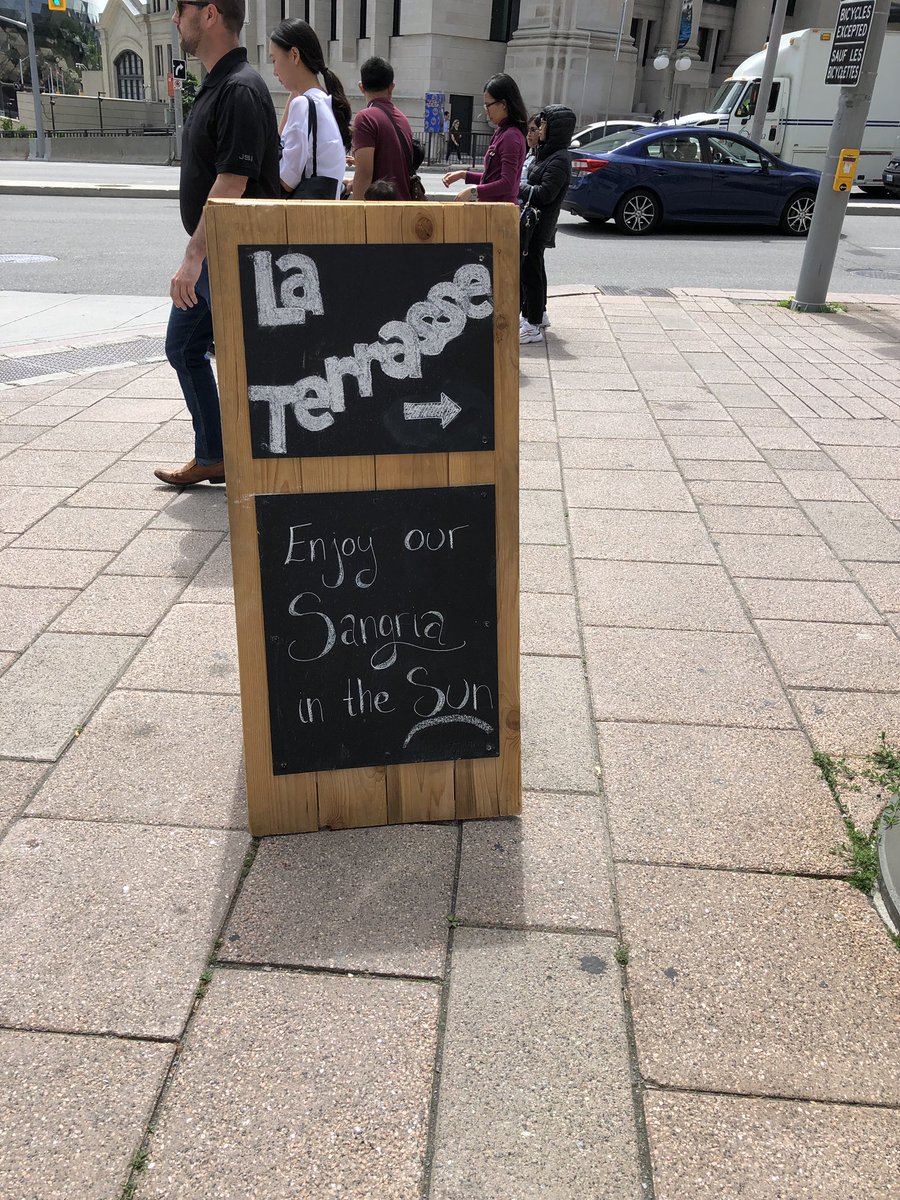 BICYCLES
EXCEPTED
SAUF LES
BICYCLETTES
JSI
La
Terrasse
Enjoy our
Sangria
in the Sun